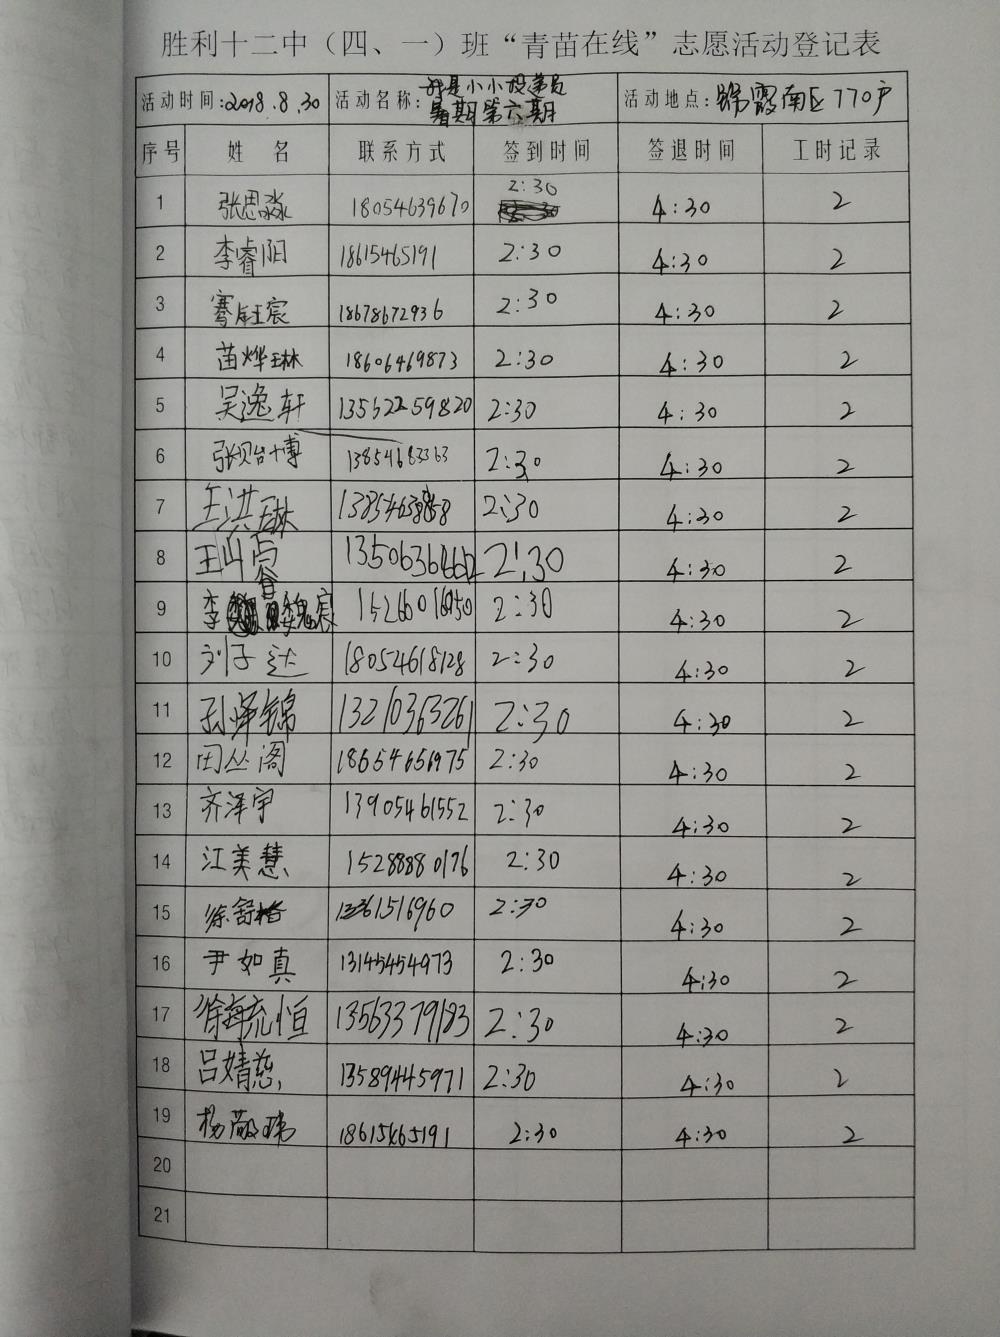 胜利十二中（四、一）班“青苗在线”志愿活动登记表
活动时间:2018.8.30 活动名称:我是小小投递员 暑期第六期 活动地点:锦霞南区770户
序号 姓名 联系方式 签到时间 签退时间 工时记录
1 张思淼 18054639670 2:30 4:30 2
2 李睿阳 18615465191 2:30 4:30 2
3 宸 18678672936 2:30 4:30 2
4 苗烨琳 18606469873 2:30 4:30 2
5 吴逸轩 13562259820 2:30 4:30 2
6 张贻博 13854683363 2:30 4:30 2
7 王洪琳 2:30 4:30 2
8 王 2:30 4:30 2
9 李 宸 2:30 4:30 2
10 刘子达 18054618128 2:30 4:30 2
11 孙烨锦 13210363261 2:30 4:30 2
12 田丛阁 18654656975 2:30 4:30 2
13 齐泽宇 13905461552 2:30 4:30 2
14 江美慧 15288880176 2:30 4:30 2
15 徐舒 13361516960 2:30 4:30 2
16 尹如真 13145454973 2:30 4:30 2
17 徐 恒 13563379183 2:30 4:30 2
18 吕婧慈 13589445971 2:30 4:30 2
19 杨 18615465191 2:30 4:30 2
20
21